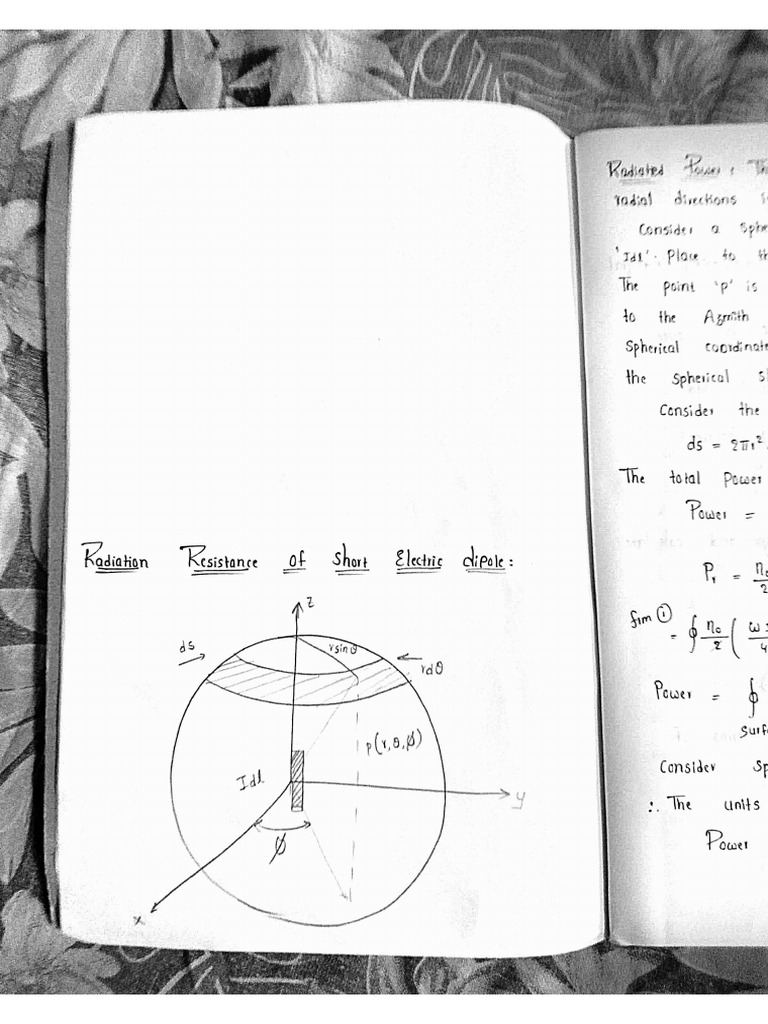 Radiation Resistance of Short Electric dipole:
z
ds
rsinθ
rdθ
p(r, θ, ϕ)
Idl
y
ϕ
x
Radiated Power :
radial directions
Consider a
'Idl'. Place to
The point 'p' is
to the Azmith
Spherical
the spherical
Consider the
ds = 2πr²
The total Power
Power =
Pr =
frm ①
= ∮ η₀/2 (
Power = ∮
Consider
∴ The units
Power